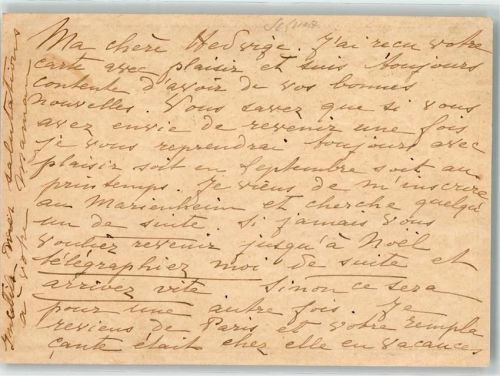 Ma chère Hedwige. J'ai reçu votre
carte avec plaisir et suis toujours
contente d'avoir de vos bonnes
nouvelles. Vous savez que si vous
avez envie de revenir une fois
je vous reprendrai toujours avec
plaisir soit en Septembre soit au
printemps. Je viens de m'inscrire
au Marienheim et cherche quelqu'
un de suite. Si jamais vous
vouliez revenir jusqu'à Noël
télégraphiez moi de suite et
arrivez vite. Sinon ce sera
pour une autre fois. Je
reviens de Paris et votre rempla
çante était chez elle en vacances.
mes salutations
à votre Maman